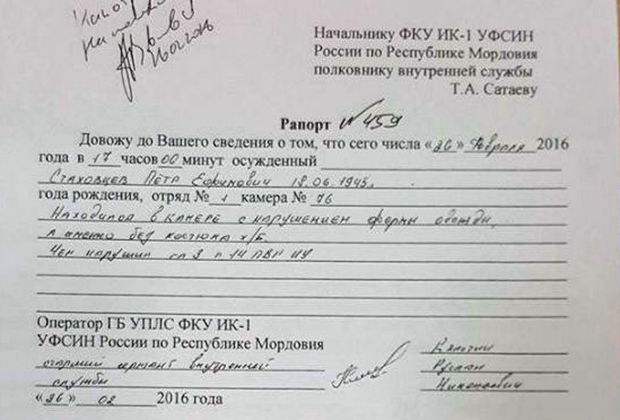 Начальнику ФКУ ИК-1 УФСИН
России по Республике Мордовия
полковнику внутренней службы
Т.А. Сатаеву
Рапорт №459
Довожу до Вашего сведения о том, что сего числа «26» февраля 2016
года в 17 часов 00 минут осужденный
Стаховцев Пётр Ефимович 18.06.1945.
года рождения, отряд № 1 камера № 76
Находился в камере с нарушением формы одежды,
а именно без костюма х/б.
Чем нарушил гл 3 п 14 ПВР ИУ
Оператор ГБ УПЛС ФКУ ИК-1
УФСИН России по Республике Мордовия
старший сержант внутренней
службы
Руслан
Николаевич
«26» 02 2016 года